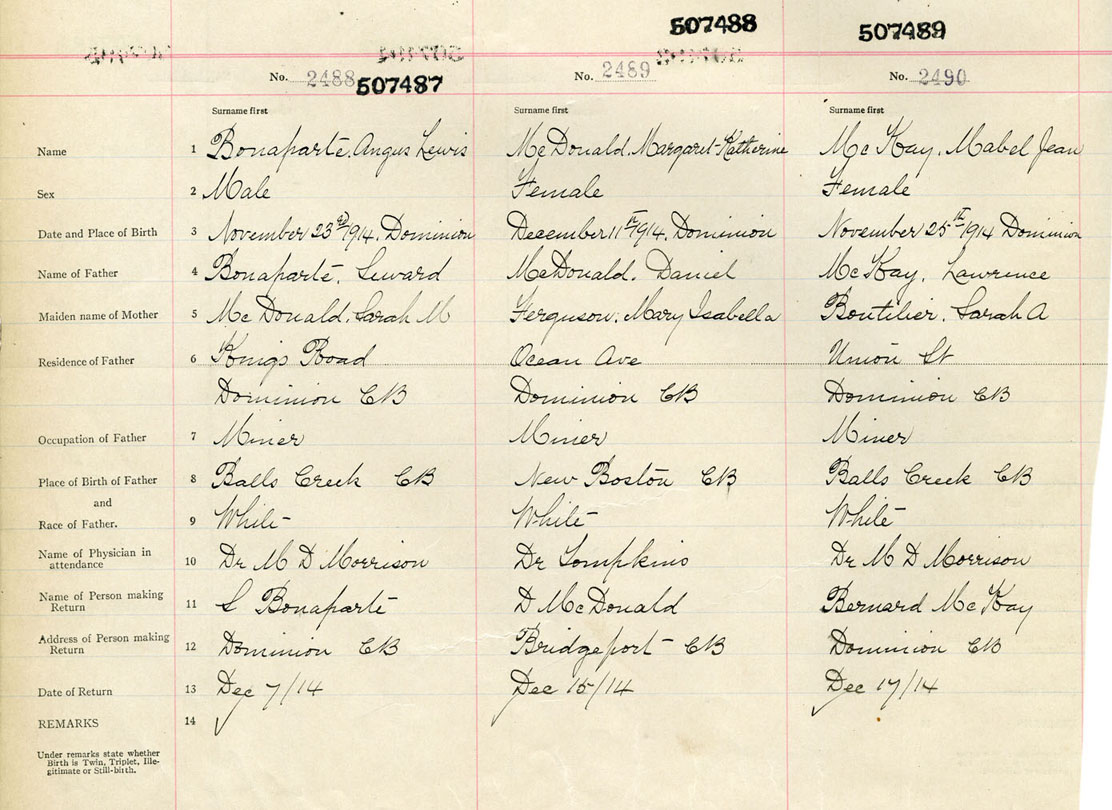 507488 507489
No. 2488 507487 No. 2489 No. 2490
Surname first Surname first Surname first
Name 1 Bonaparte. Angus Lewis McDonald. Margaret Katherine McKay. Mabel Jean
Sex 2 Male Female Female
Date and Place of Birth 3 November 23rd 1914. Dominion December 11th 1914. Dominion November 25th 1914 Dominion
Name of Father 4 Bonaparte. Seward McDonald. Daniel McKay. Lawrence
Maiden name of Mother 5 McDonald. Sarah M Ferguson. Mary Isabella Boutilier. Sarah A
Residence of Father 6 Kings Road Ocean Ave Union St
Dominion CB Dominion CB Dominion CB
Occupation of Father 7 Miner Miner Miner
Place of Birth of Father 8 Balls Creek CB New Boston CB Balls Creek CB
and
Race of Father. 9 White White White
Name of Physician in attendance 10 Dr M D Morrison Dr Tompkins Dr M D Morrison
Name of Person making Return 11 S Bonaparte D McDonald Bernard McKay
Address of Person making Return 12 Dominion CB Bridgeport CB Dominion CB
Date of Return 13 Dec 7/14 Dec 15/14 Dec 17/14
REMARKS 14
Under remarks state whether
Birth is Twin, Triplet, Ille-
gitimate or Still-birth.